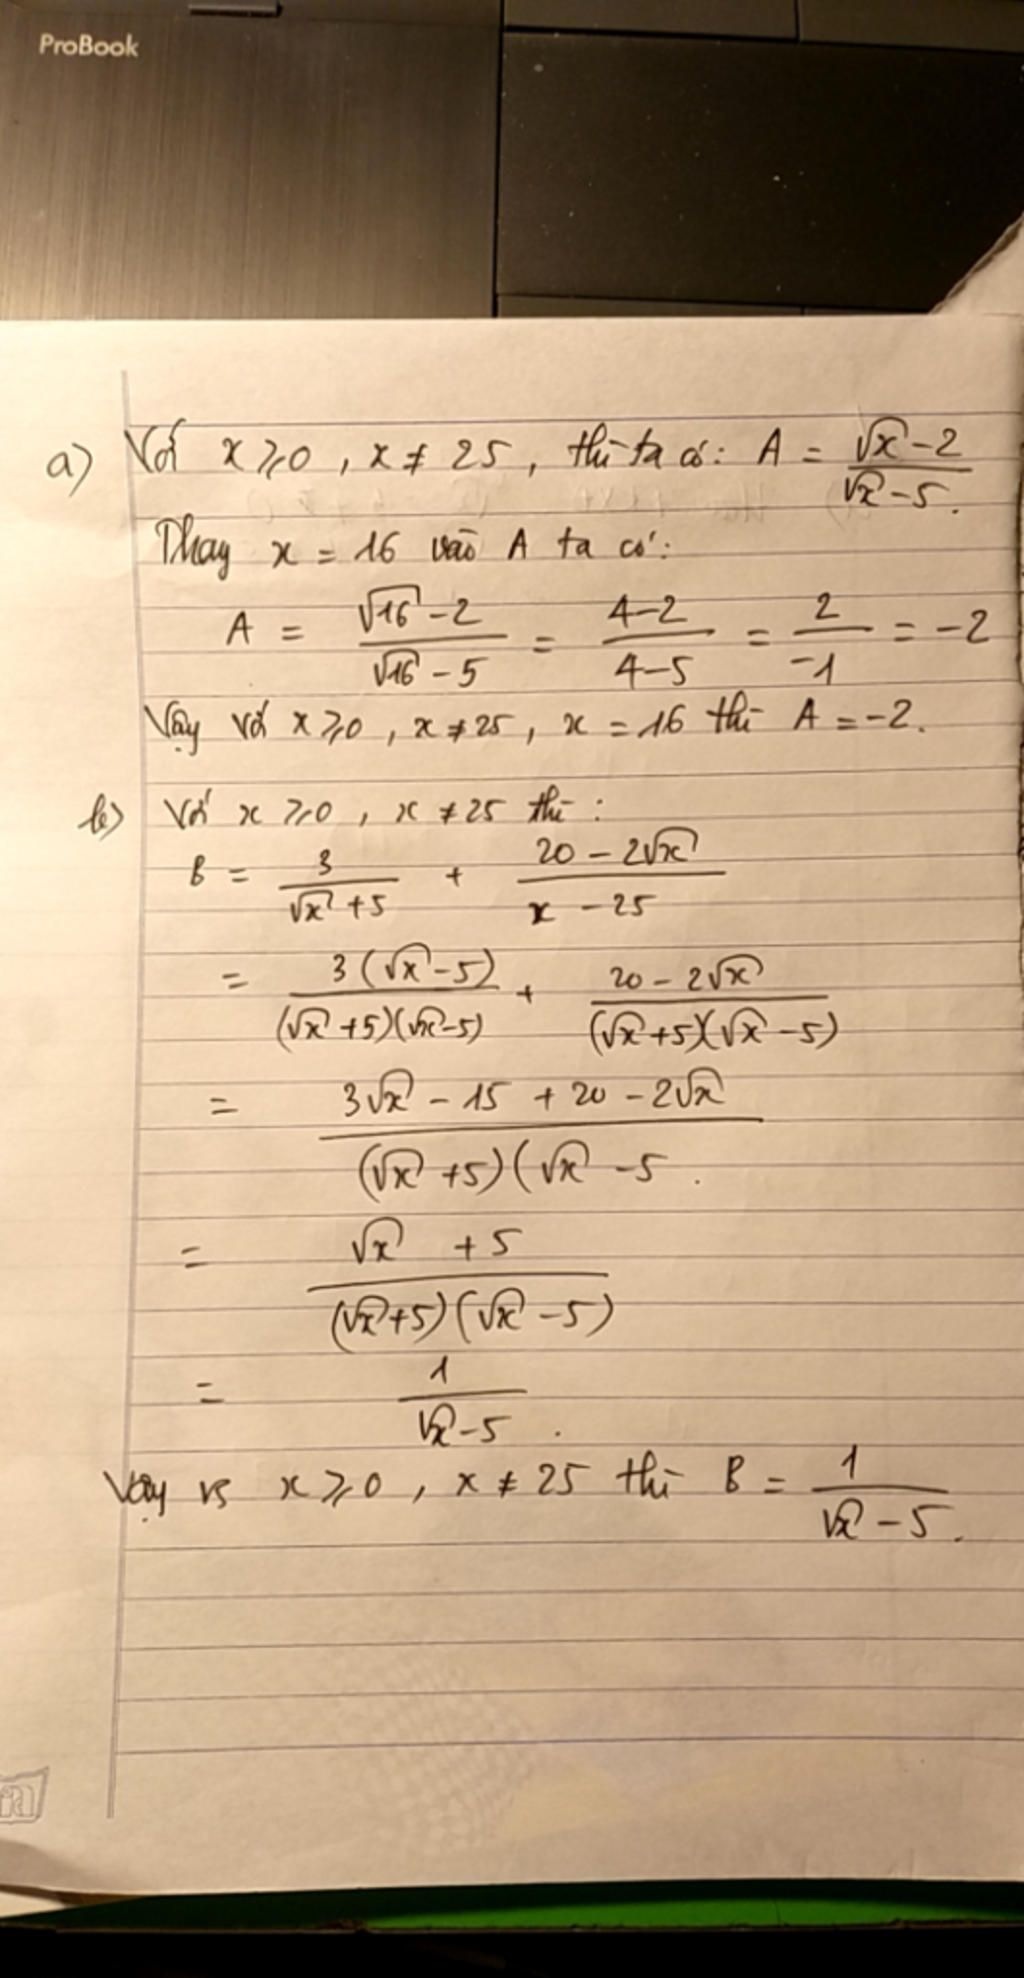 ProBook
a) Với x ≥ 0, x ≠ 25, thì ta có: A = (√x - 2)/(√x - 5).
Thay x = 16 vào A ta có:
A = (√16 - 2)/(√16 - 5) = (4-2)/(4-5) = 2/(-1) = -2
Vậy với x ≥ 0, x ≠ 25, x = 16 thì A = -2.
b) Với x ≥ 0, x ≠ 25 thì:
B = 3/(√x + 5) + (20 - 2√x)/(x - 25)
= 3(√x - 5)/((√x + 5)(√x - 5)) + (20 - 2√x)/((√x + 5)(√x - 5))
= (3√x - 15 + 20 - 2√x)/((√x + 5)(√x - 5.
= (√x + 5)/((√x + 5)(√x - 5))
= 1/(√x - 5).
Vậy vs x ≥ 0, x ≠ 25 thì B = 1/(√x - 5).